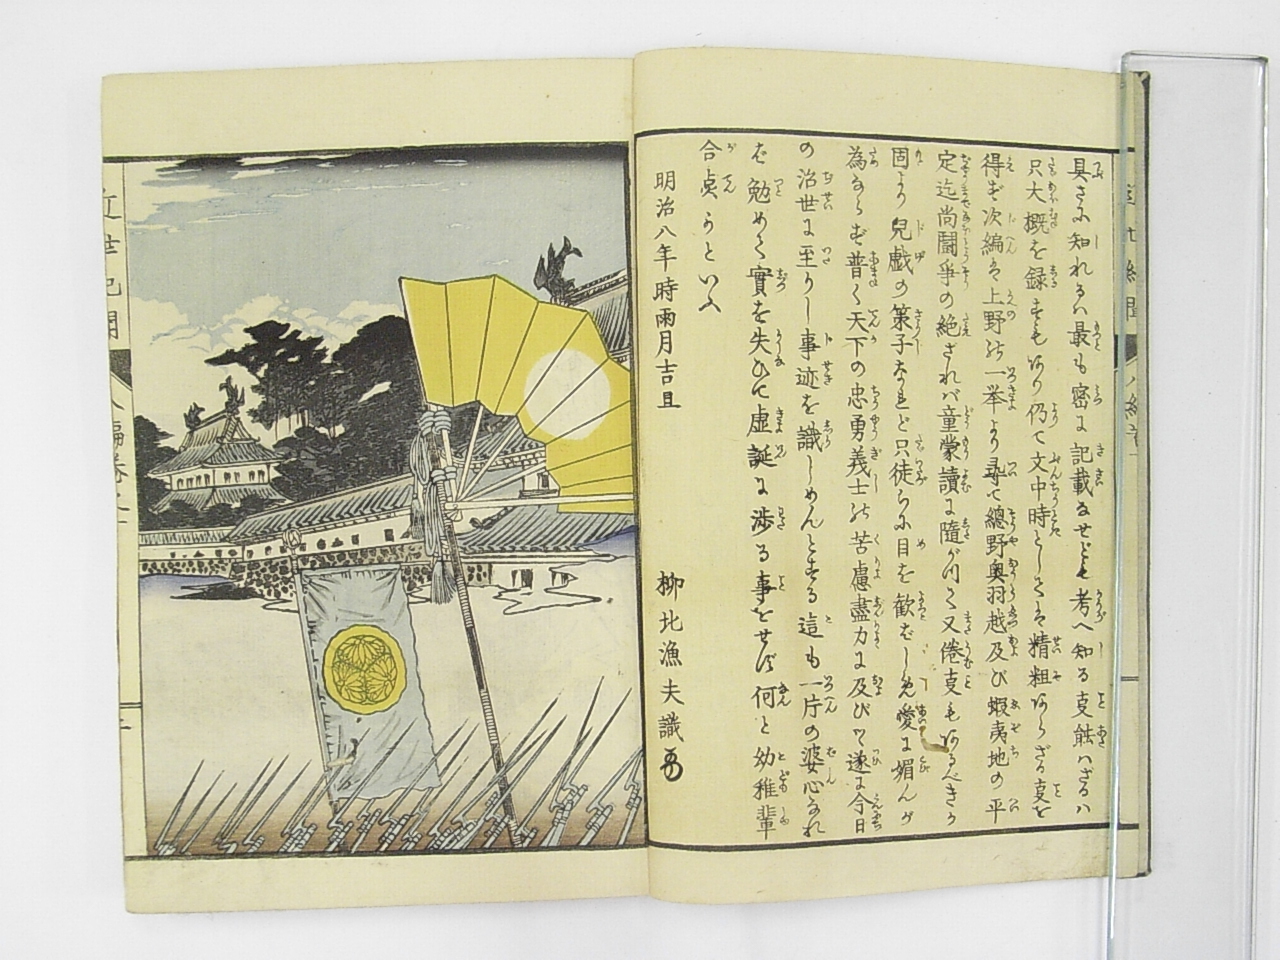 具さに知れるハ最も密に記載なせども考へ知る事能ハざるハ
只大概を録すもあり仍て文中時としては精粗あらざる事を
得ず次編は上野の一挙より尋て總野奥羽越及び蝦夷地の平
定迄尚闘争の絶ざれバ童蒙讀に隨がつて又倦事もあるべきか
固より兒戯の策子なれど只徒らに目を歓ばしめ愛に媚んが
為ならず普く天下の忠勇義士の苦慮盡力に及びて遂に今日
の治世に至りし事迹を識しめんとする這も一片の婆心なれ
ば勉めて實を失ひて虚誕に渉る事をせず何と幼稚輩
合点かといふ
明治八年時雨月吉旦
柳北漁夫識
近世紀聞
八編巻之一